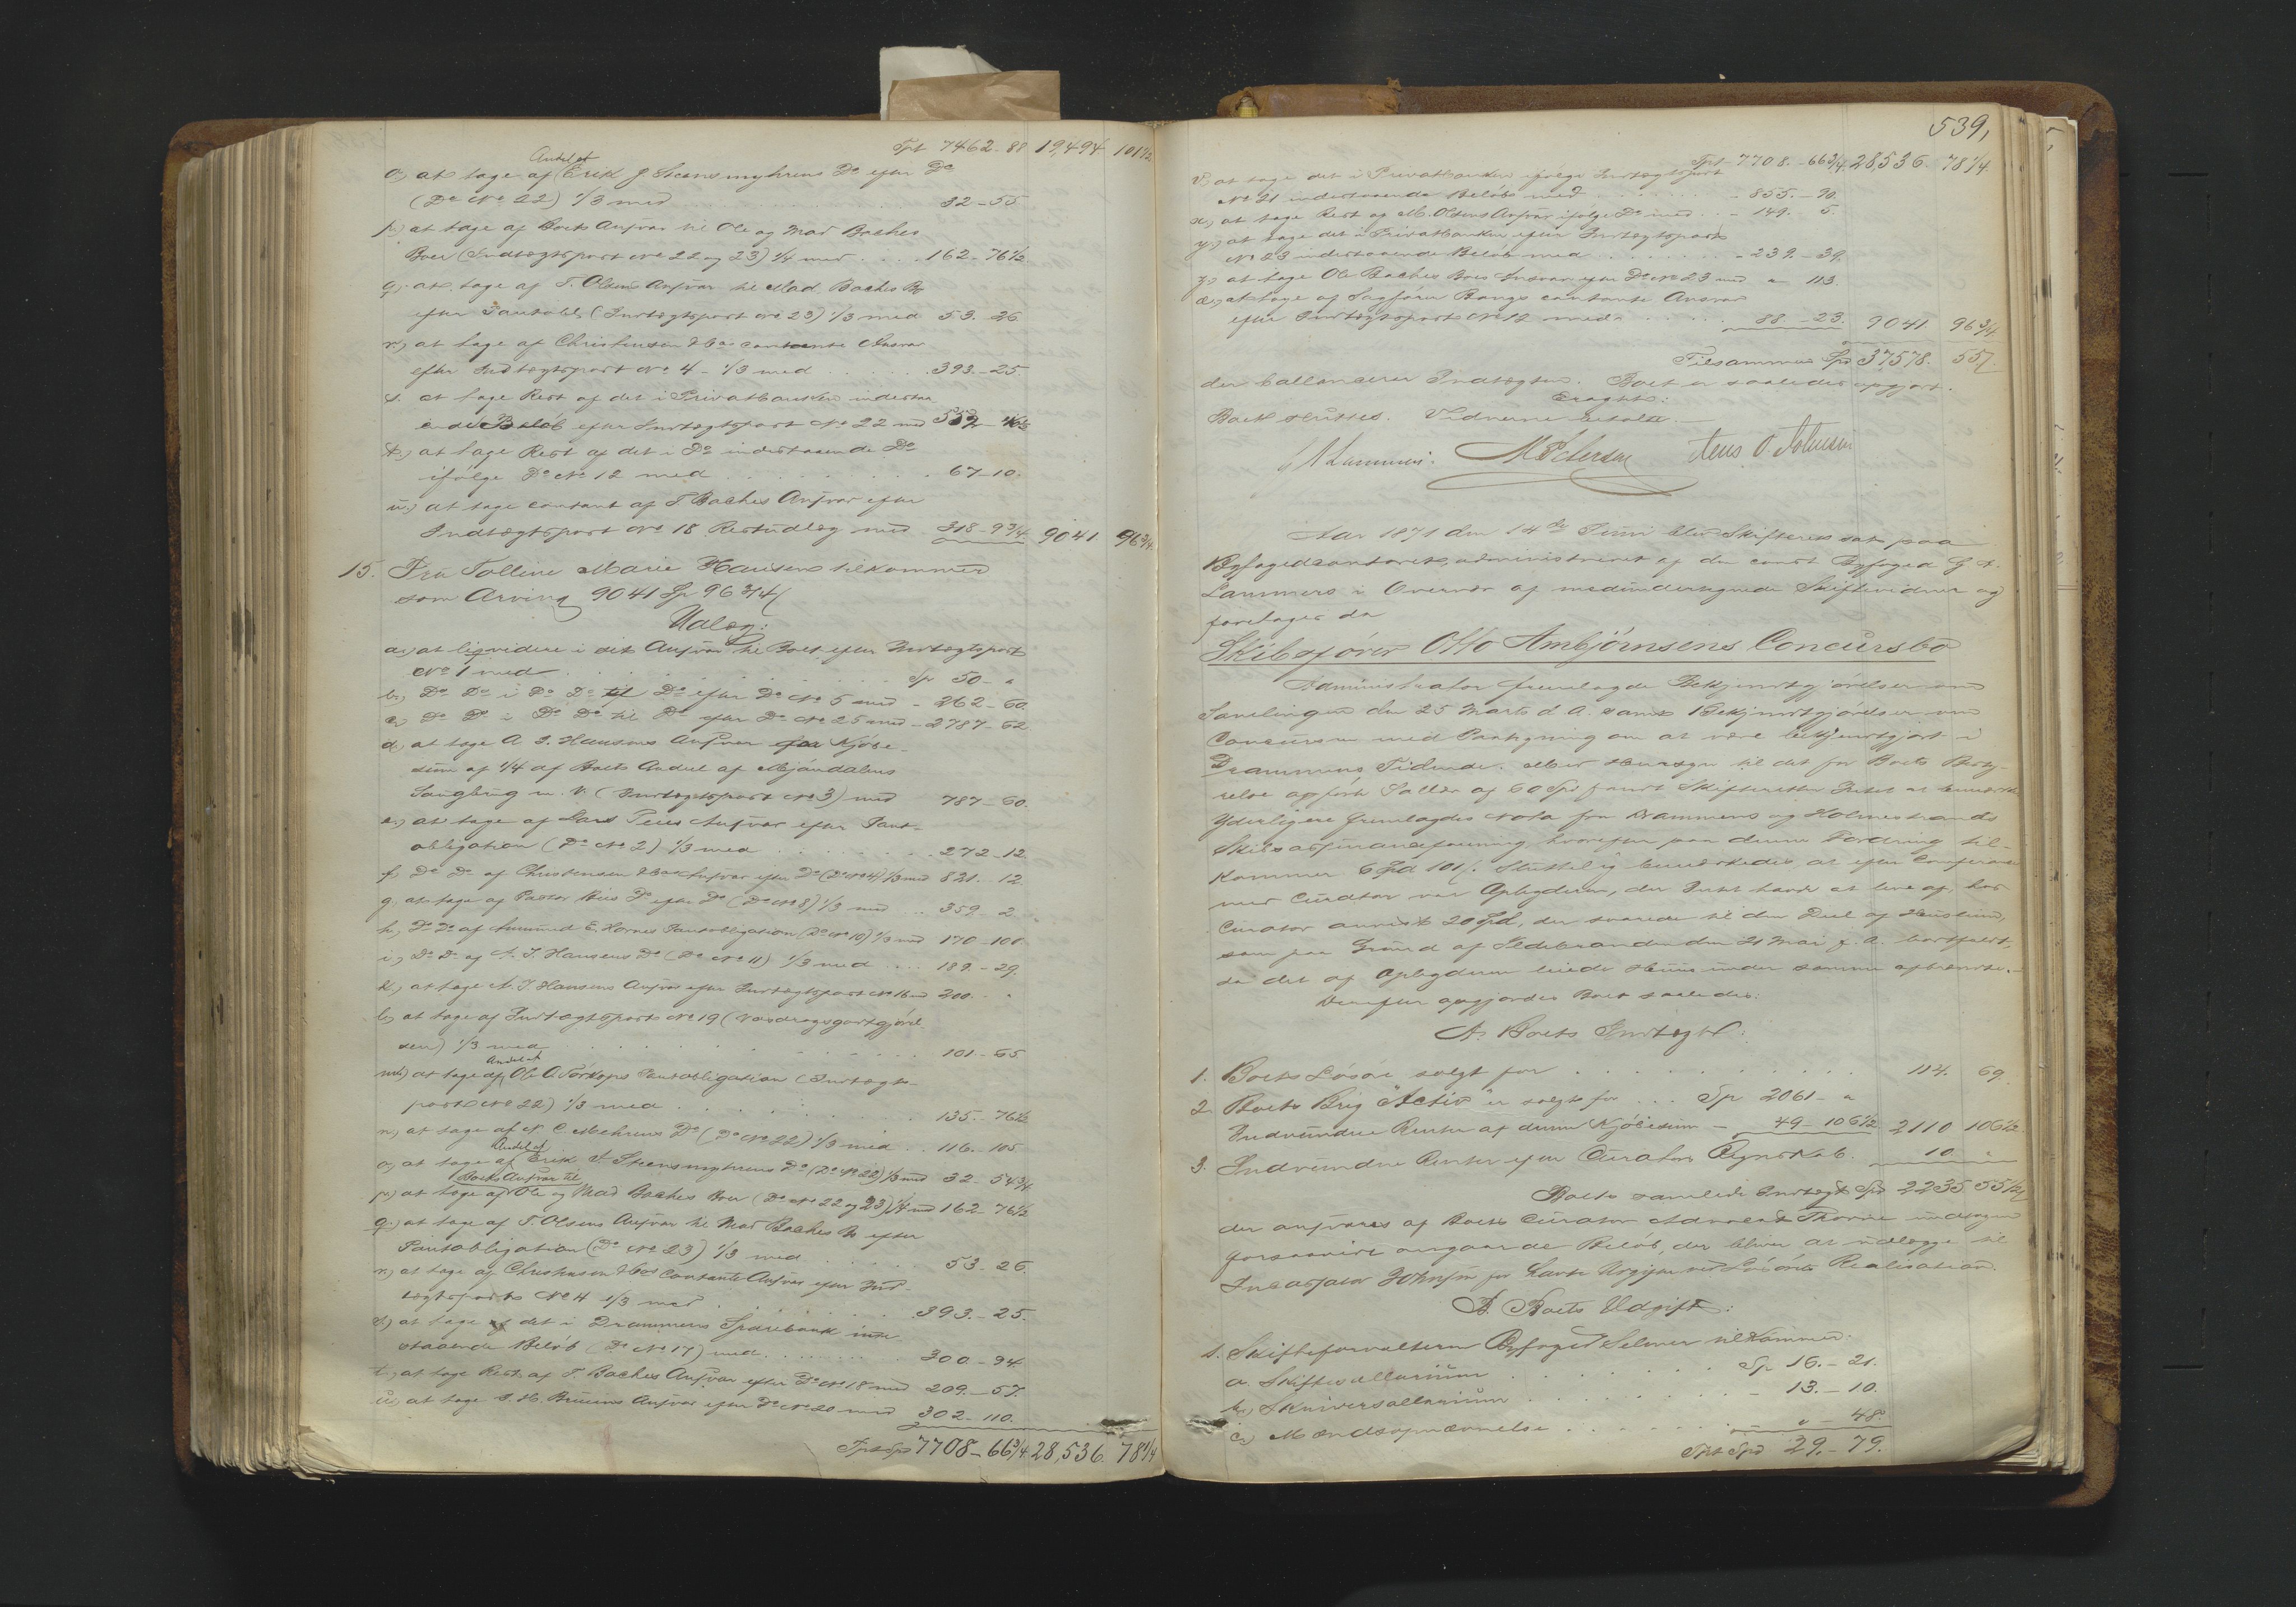 Tpt 7462-88 19,494 101½
Andel af
o,) at tage af Erik J Steensmyhrens Do efter Do
(Do No 22) ⅓ med 32-55
p.) at tage af Boets Ansvar til Ole og Mad Baches
Boer (Indtægtspost No 22 og 23) ¼ med .... 162-76½
q,) at tage af T. Olsens Ansvar til Mad. Baches Bo
efter Pantobl. (Indtægtspost No 23) ⅓ med 53. 26
r.) at tage af Christensen & Co contante Ansvar
efter Indtægtspost No 4 - ⅓ med ...... 393.-25.
s. at tage Rest af det i Privatbanken indestaa
ende Beløb efter Indtægtspost No 22 med
t,) at tage Rest af det i Do indestaaende Do
ifølge Do No 12 med 67-10.
u,) at tage contant af T. Baches Ansvar efter
Indtægtspost No 18 Restudlæg med 318-9¾ 9041 96¾
15. Fru Tolline Marie Hansen tilkommer
som Arving 9041 Sp 96¾ /
Udlæg:
a,) at liqvidere i sit Ansvar til Boet efter Indtægtspost
No 1 med Sp 50-"
b,) Do Do i Do Do til Do efter Do No 5 med - 262-60.
c,) Do Do i Do Do til Do efter Do No 25 med - 2787-62
d,) at tage A. J. Hansens Ansvar for Kjøbe-
sum af ¼ af Boets Andel af Mjøndalens
Saugbrug m. V. (Indtægtspost No 3) med 787-60.
e,) at tage af Lars Ansvar efter Pant-
obligation (Do No 2) ⅓ med ........ 272-12
f,) Do Do af Christensen & Co Ansvar efter Do (Do No 4) ⅓ med 821-12.
g. at tage af Pastor Do efter Do (Do No 8) ⅓ med .. 359-2
h,) Do Do af E. Hornes Pantobligation (Do No 10) ⅓ med 170-100
i,) Do Do af A. J. Hansens Do (Do No 11) ⅓ med .... 189.-29.
k,) at tage A. J Hansens Ansvar efter Indtægtspost No 16 med 200. "
l,) at tage af Indtægtspost No 19 (
sen) ⅓ med 101.-65
Andel af
m,) at tage af Ole O. Pantobligation (Indtægts-
post No 22) ⅓ med 135.-76½
n,) at tage af N. C. Mehrens Do (Do No 22) ⅓ med .. 116.-105
Andel af
o,) at tage af Erik J. Steensmyhrens Do (Do No 22) ⅓ med 32-54¾
Boets Ansvar til
p,) at tage af Ole og Mad Baches Boer (Do No 22 og 23) ¼ med 162-76½
q.) at tage af T. Olsens Ansvar til Mad Baches Bo efter
Pantobligation (Do No 23) ⅓ med 53-26.
r,) at tage af Christensen & Co Contante Ansvar efter Ind-
tægtspost No 4 ⅓ med 393.-25.
s,) at tage af det i Drammens Sparebank inde
staaende Beløb (Do No 17) med 300-94.
t,) at tage Rest af T. Baches Ansvar efter Do No 18 med 209.-57.
u,) at tage S. H. Bruuns Ansvar efter Do No 20 med 302-110.
Tpt Spd 7708-66¾ 28,536. 78¼
539,
Tpt 7708.-66¾ 28,536. 78¼.
v,) at tage det i Privatbanken ifølge Indtægtspost
No 21 indestaaende Beløb med - 855.-90.
x,) at tage Rest af M. Olsens Ansvar ifølge Do med .. - 149. 5.
y,) at tage det i Privatbanken efter Indtægtspost
No 23 indestaaende Beløb med - 239.-39.
z,) at tage Ole Baches Boes Ansvar efter Do No 23 med " 113.
æ,) at tage af Sagfører Bangs contante Ansvar
efter Indtægtspost No 12 med 88-23. 9041 96¾.
Tilsammen Spd 37578. 55/.
der ballancerer Indtægten. Boet er saaledes opgjort.
Eragtet:
Boet sluttes. Vidnerne betalte. –
G A Lammers. M Petersen Jens O. Johnsen
Aar 1871 den 14de Juni blev Skifteret sat paa
Byfogedcontoret, administreret af den const Byfoged G A.
Lammers i Overvær af medundertegnede Skiftevidner og
foretoges da
Skibsfører Otto Ambjørnsens Concursbo
Administrator fremlagde Bekjendtgjørelser om
Samlingen den 25 Marts d. A. samt Bekjendtgjørelser om
Concursen med Paategning om at være bekjendtgjort i
Drammens Tidende. Med Hensyn til det for Boets Besty-
relse opførte Salær af 60 Spd fandt Skifteretten Intet at bemærke
Yderligere fremlagdes Nota fra Drammens og Holmestrands
Skibsassuranceforening, hvorefter paa denne Fordring til-
kommer 6 Spd 101/. Sluttelig bemærkedes at efter Conferance
med Curator var Opbyderen, der Intet havde at leve af, hos
Curator anvist 20 Spd, der svarede til den Deel af Huusleien,
som paa Grund af Ildebranden den 21 Mai f. A. bortfaldt,
da det af Opbyderen leiede Huus under samme afbrændte. –
Derefter opgjordes Boet saaledes:
A. Boets Indtægt:
1. Boets Løsøre solgt for ........... 114. 69
2. Boets Brig "Activ" er solgt for ... Sp 2061-"
Indvundne Renter af denne Kjøbesum - 49-106½ 2110 106½
3. Indvundne Renter efter Curators Regnskab. 10. "
Boets samlede Indtægt Spd 2235 55½
der ansvares af Boets Curator Advocat Thorne undtagen
forsaavidt angaar de Beløb, der bliver at udlægge til
Incassator Johnsen for havte Udgifter ved Løsørets Realisation.
B. Boets Udgift:
1. Skifteforvalteren Byfoged Selmer tilkommer:
a. Skiftesallarium Sp 16.-21.
b,) Skriversallarium - 13.-10.
c,) Mændsopnævnelse " - 48.
Tpt Spd 29.-79.